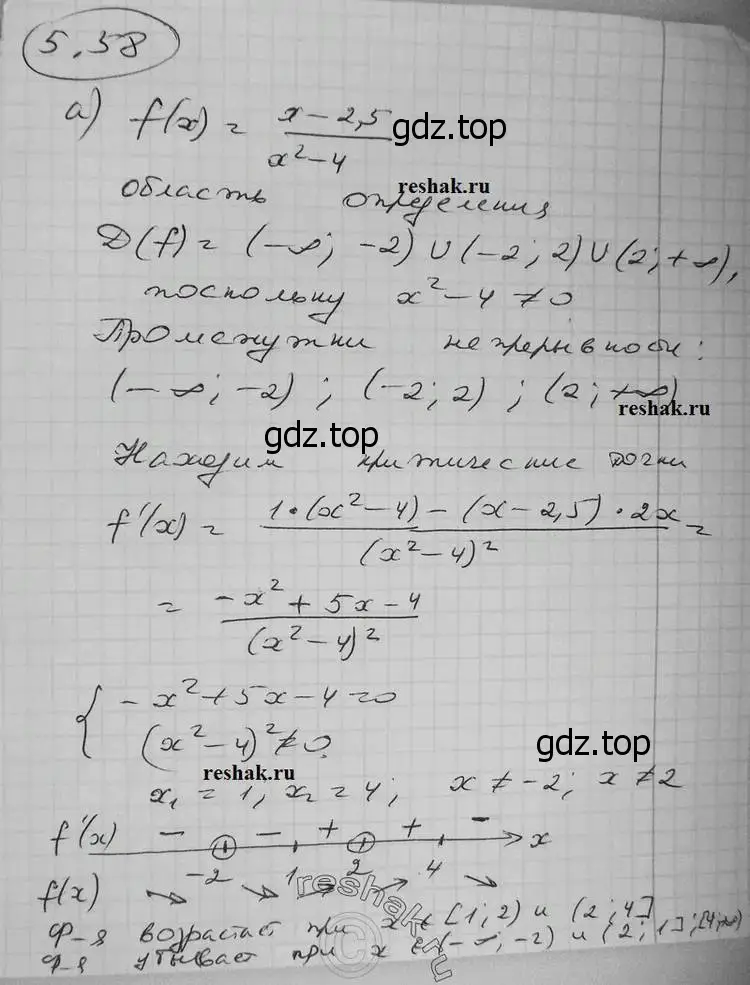 5.58
а) f(x) = (x - 2,5)/(x² - 4) gdz.top
reshak.ru
область определения
D(f) = (-∞; -2) ∪ (-2; 2) ∪ (2; +∞),
поскольку x² - 4 ≠ 0
Промежутки непрерывности:
(-∞; -2) ; (-2; 2) ; (2; +∞)
reshak.ru
gdz.top
Находим критические точки
f'(x) = (1·(x² - 4) - (x - 2,5)·2x)/(x² - 4)² =
= (-x² + 5x - 4)/(x² - 4)²
{ -x² + 5x - 4 = 0
(x² - 4)² ≠ 0
gdz.top
reshak.ru
x₁ = 1; x₂ = 4; x ≠ -2; x ≠ 2
f'(x) - - + + - x
-2 1 2 4
f(x) ↘ ↘ ↗ ↗ ↘
reshak.ru
©
Ф-я возрастает при x ∈ [1; 2) и (2; 4]
Ф-я убывает при x ∈ (-∞; -2) и (2; 1]; [4; +∞)